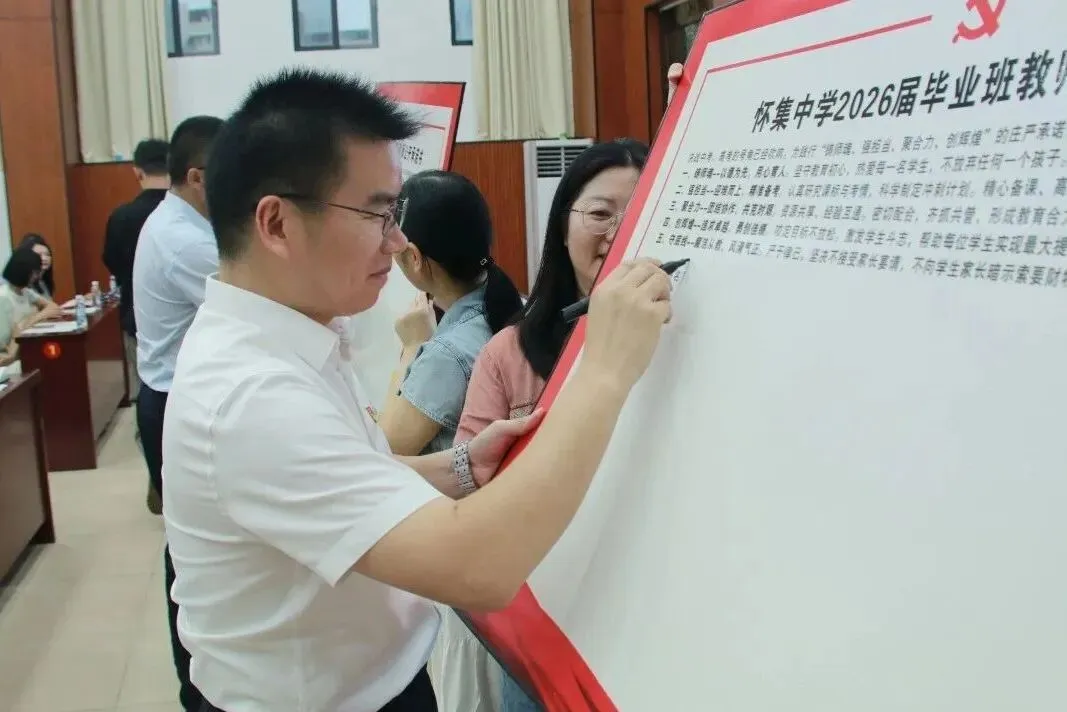 怀集中学2026届毕业班教师
决战中考、高考的号角已经吹响，为践行“铸师魂、强担当、聚合力、创辉煌”的庄严承诺
一、铸师魂--以德为先，用心育人。坚守教育初心，热爱每一名学生，不放弃任何一个孩子。
二、强担当--迎难而上，精准备考。认真研究课标与考情，科学制定冲刺计划，精心备课、高
三、聚合力--团结协作，共克时艰。资源共享，经验互通，密切配合，齐抓共管，形成教育合力
四、创辉煌--追求卓越，勇创佳绩。咬定目标不放松，激发学生斗志，帮助每位学生实现最大提
五、守底线--廉洁从教，风清气正。严于律己，坚决不接受家长宴请，不向学生家长暗示索要财物
1